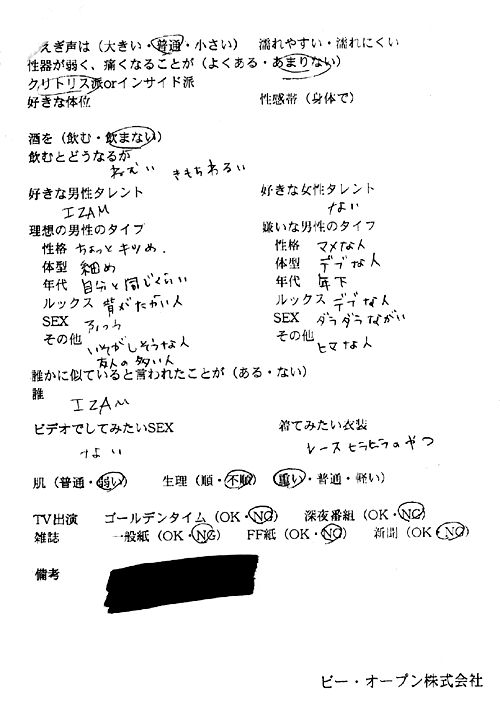 えぎ声は（大きい・普通・小さい）　濡れやすい・濡れにくい
性器が弱く、痛くなることが（よくある・あまりない）
クリトリス派orインサイド派
好きな体位　性感帯（身体で）
酒を（飲む・飲まない）
飲むとどうなるか
ねむい　きもちわるい
好きな男性タレント　好きな女性タレント
IZAM　ない
理想の男性のタイプ　嫌いな男性のタイプ
性格　ちょっとキツめ．　性格　マメな人
体型　細め　体型　デブな人
年代　自分と同じくらい　年代　年下
ルックス　背がたかい人　ルックス　デブな人
SEX　ふつう　SEX　ダラダラながい
その他　いそがしそうな人　その他　ヒマな人
友人の多い人
誰かに似ていると言われたことが（ある・ない）
誰　IZAM
ビデオでしてみたいSEX　着てみたい衣装
ない　レースヒラヒラのやつ
肌（普通・弱い）　生理（順・不順）（重い・普通・軽い）
TV出演　ゴールデンタイム（OK・NG）　深夜番組（OK・NG）
雑誌　一般紙（OK・NG）　FF紙（OK・NG）　新聞（OK・NG）
備考
ビー・オープン株式会社